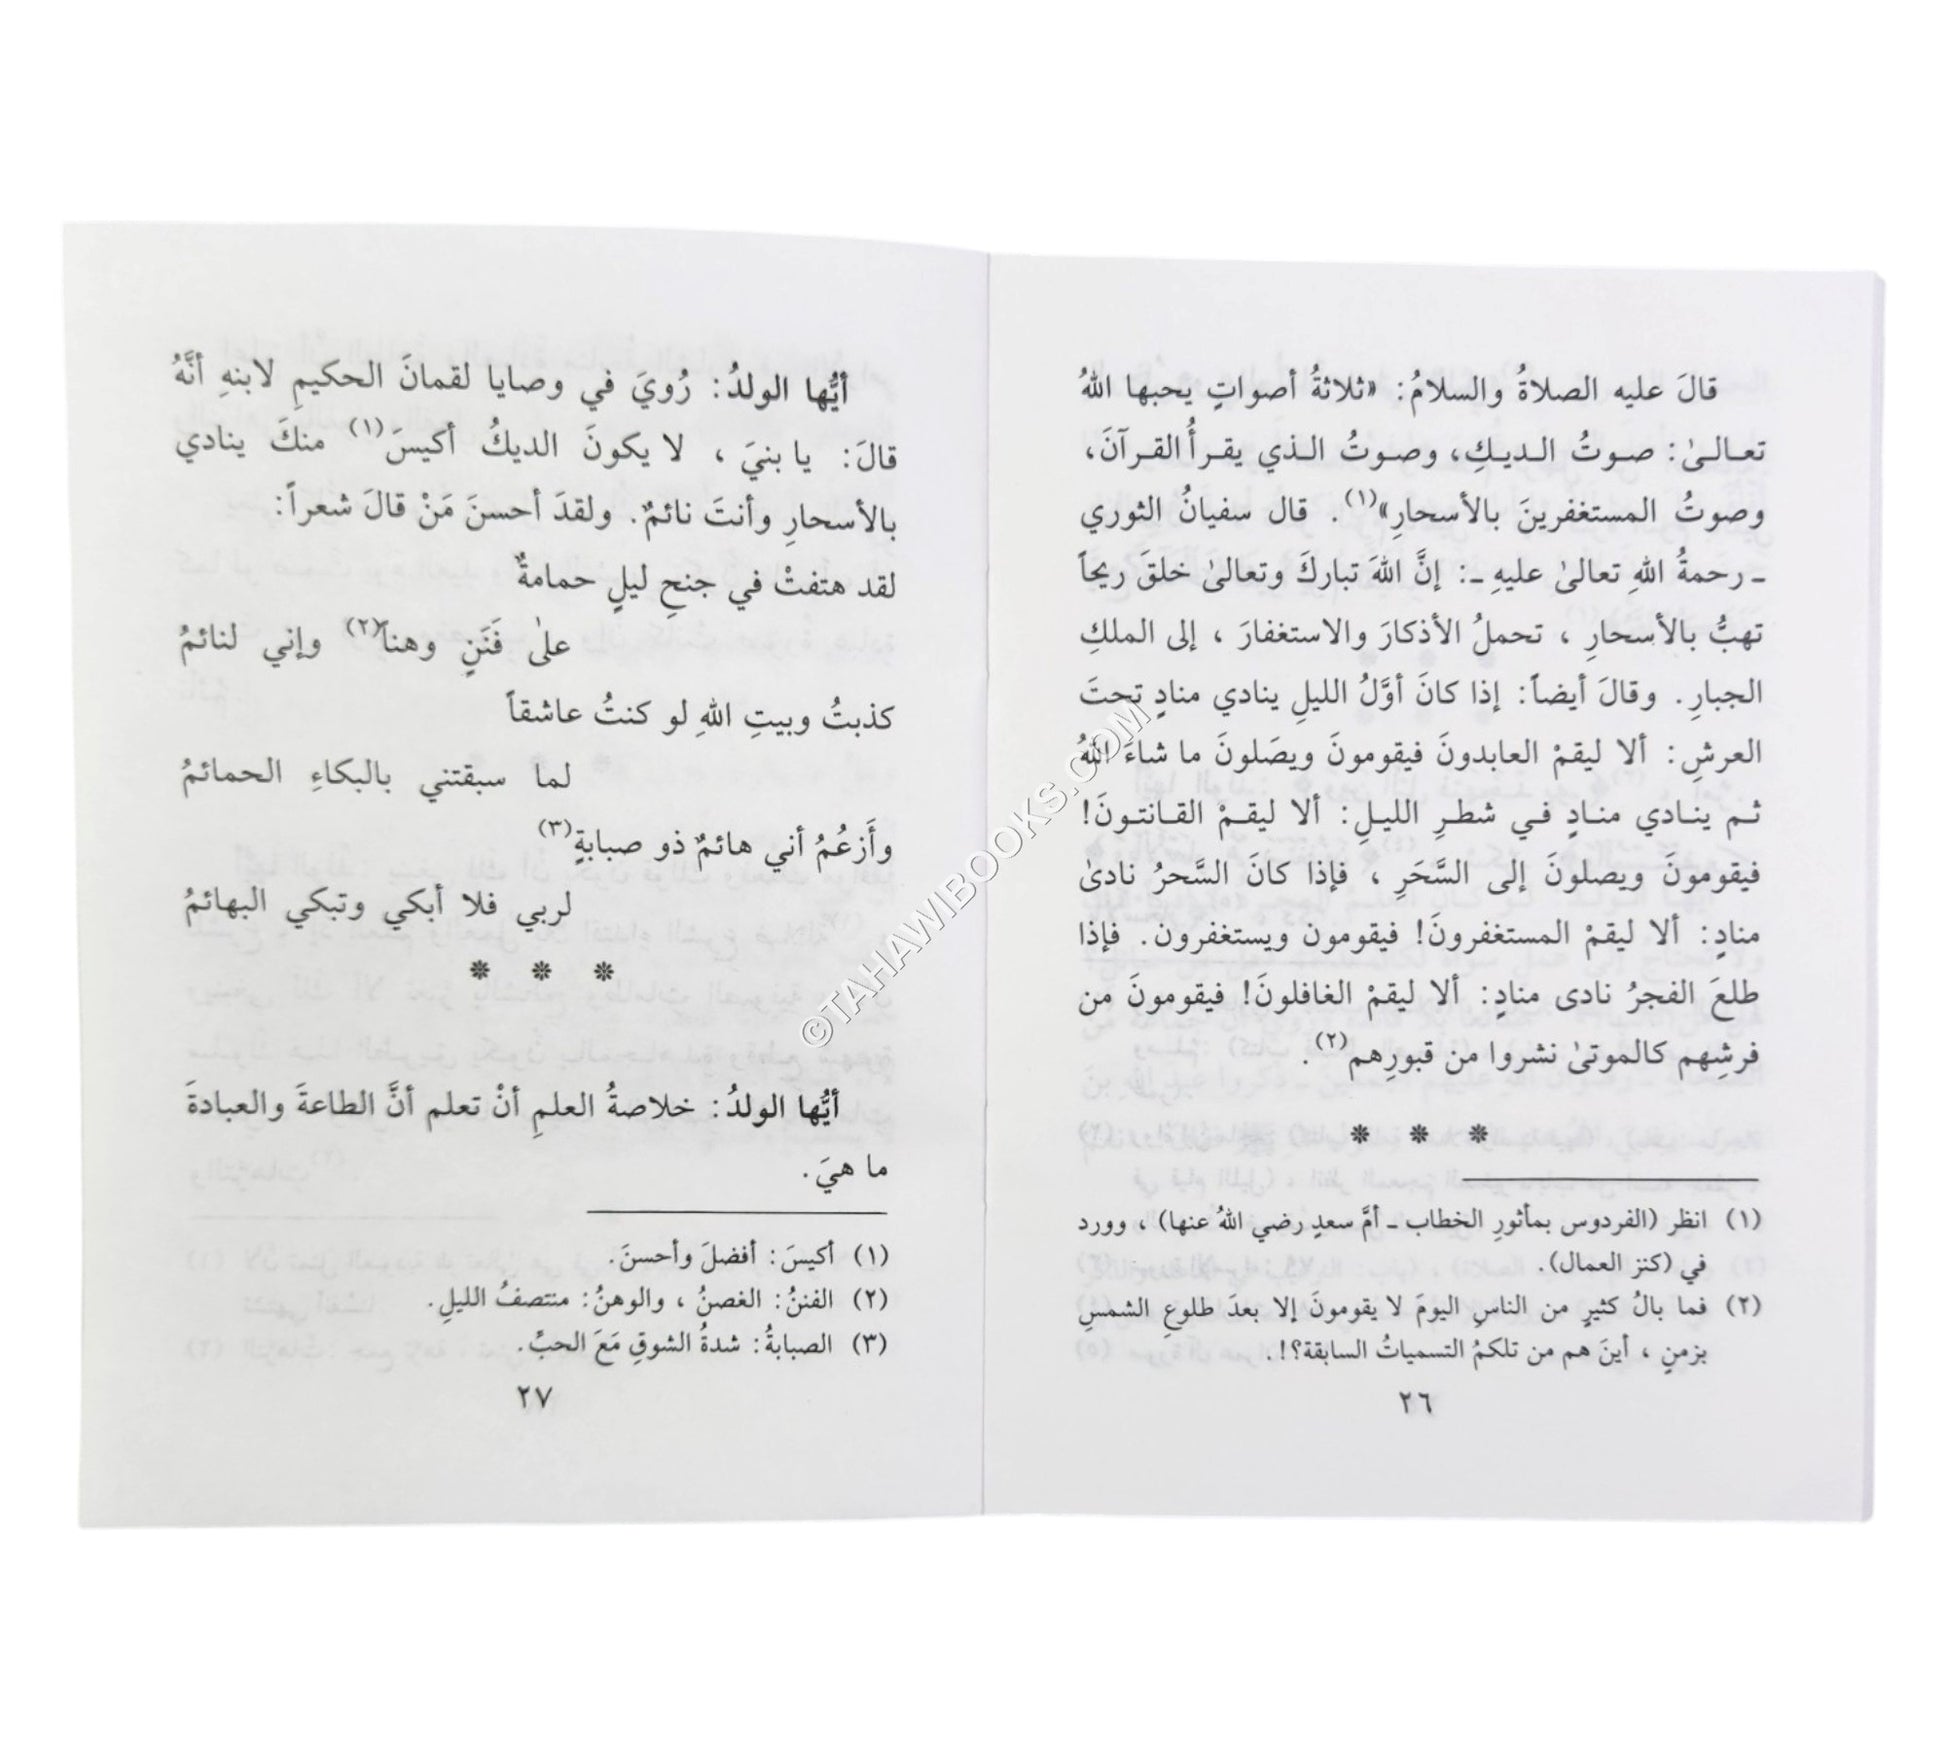 قالَ عليه الصلاةُ والسلامُ: «ثلاثةُ أصواتٍ يحبها اللهُ
تعالىٰ: صوتُ الديكِ، وصوتُ الذي يقرأُ القرآنَ،
وصوتُ المستغفرينَ بالأسحارِ»(١). قال سفيانُ الثوري
ـ رحمةُ اللهِ تعالىٰ عليهِ ـ: إنَّ اللهَ تباركَ وتعالىٰ خلقَ ريحاً
تهبُّ بالأسحارِ ، تحملُ الأذكارَ والاستغفارَ ، إلى الملكِ
الجبارِ. وقالَ أيضاً: إذا كانَ أوَّلُ الليلِ ينادي منادٍ تحتَ
العرشِ: ألا ليقمْ العابدونَ فيقومونَ ويصَلونَ ما شاءَ اللهُ
ثم ينادي منادٍ في شطرِ الليلِ: ألا ليقمْ القانتونَ!
فيقومونَ ويصلونَ إلى السَّحَرِ ، فإذا كانَ السَّحرُ نادىٰ
منادٍ: ألا ليقمْ المستغفرونَ! فيقومون ويستغفرون. فإذا
طلعَ الفجرُ نادى منادٍ: ألا ليقمْ الغافلونَ! فيقومونَ من
فرشِهم كالموتىٰ نشروا من قبورِهم(٢).
❋ ❋ ❋
(١) انظر (الفردوس بمأثورِ الخطاب ـ أمَّ سعدٍ رضي اللهُ عنها) ، وورد
في (كنز العمال).
(٢) فما بالُ كثيرٍ من الناسِ اليومَ لا يقومونَ إلا بعدَ طلوعِ الشمسِ
بزمنٍ ، أينَ هم من تلكمُ التسمياتُ السابقة؟!.
٢٦
أيُّها الولدُ: رُويَ في وصايا لقمانَ الحكيمِ لابنهِ أنَّهُ
قالَ: يا بنيَ ، لا يكونَ الديكُ أكيسَ(١) منكَ ينادي
بالأسحارِ وأنتَ نائمٌ. ولقدَ أحسنَ مَنْ قالَ شعراً:
لقد هتفتْ في جنحِ ليلٍ حمامةٌ
علىٰ فَنَنٍ وهناً(٢) وإني لنائمُ
كذبتُ وبيتِ اللهِ لو كنتُ عاشقاً
لما سبقتني بالبكاءِ الحمائمُ
وأَزعُمُ أني هائمٌ ذو صبابةٍ(٣)
لربي فلا أبكي وتبكي البهائمُ
❋ ❋ ❋
أيُّها الولدُ: خلاصةُ العلمِ أنْ تعلم أنَّ الطاعةَ والعبادةَ
ما هيَ.
(١) أكيسَ: أفضلَ وأحسنَ.
(٢) الفننُ: الغصنُ ، والوهنُ: منتصفُ الليلِ.
(٣) الصبابةُ: شدةُ الشوقِ مَعَ الحبِّ.
٢٧
©TAHAWIBOOKS.COM